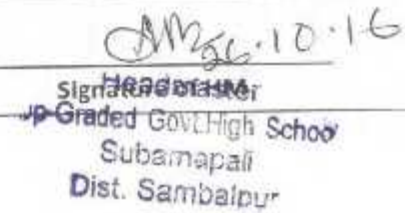 26.10.16
Signature of HM
Headmaster
Up-Graded Govt. High School
Subarnapali
Dist. Sambalpur